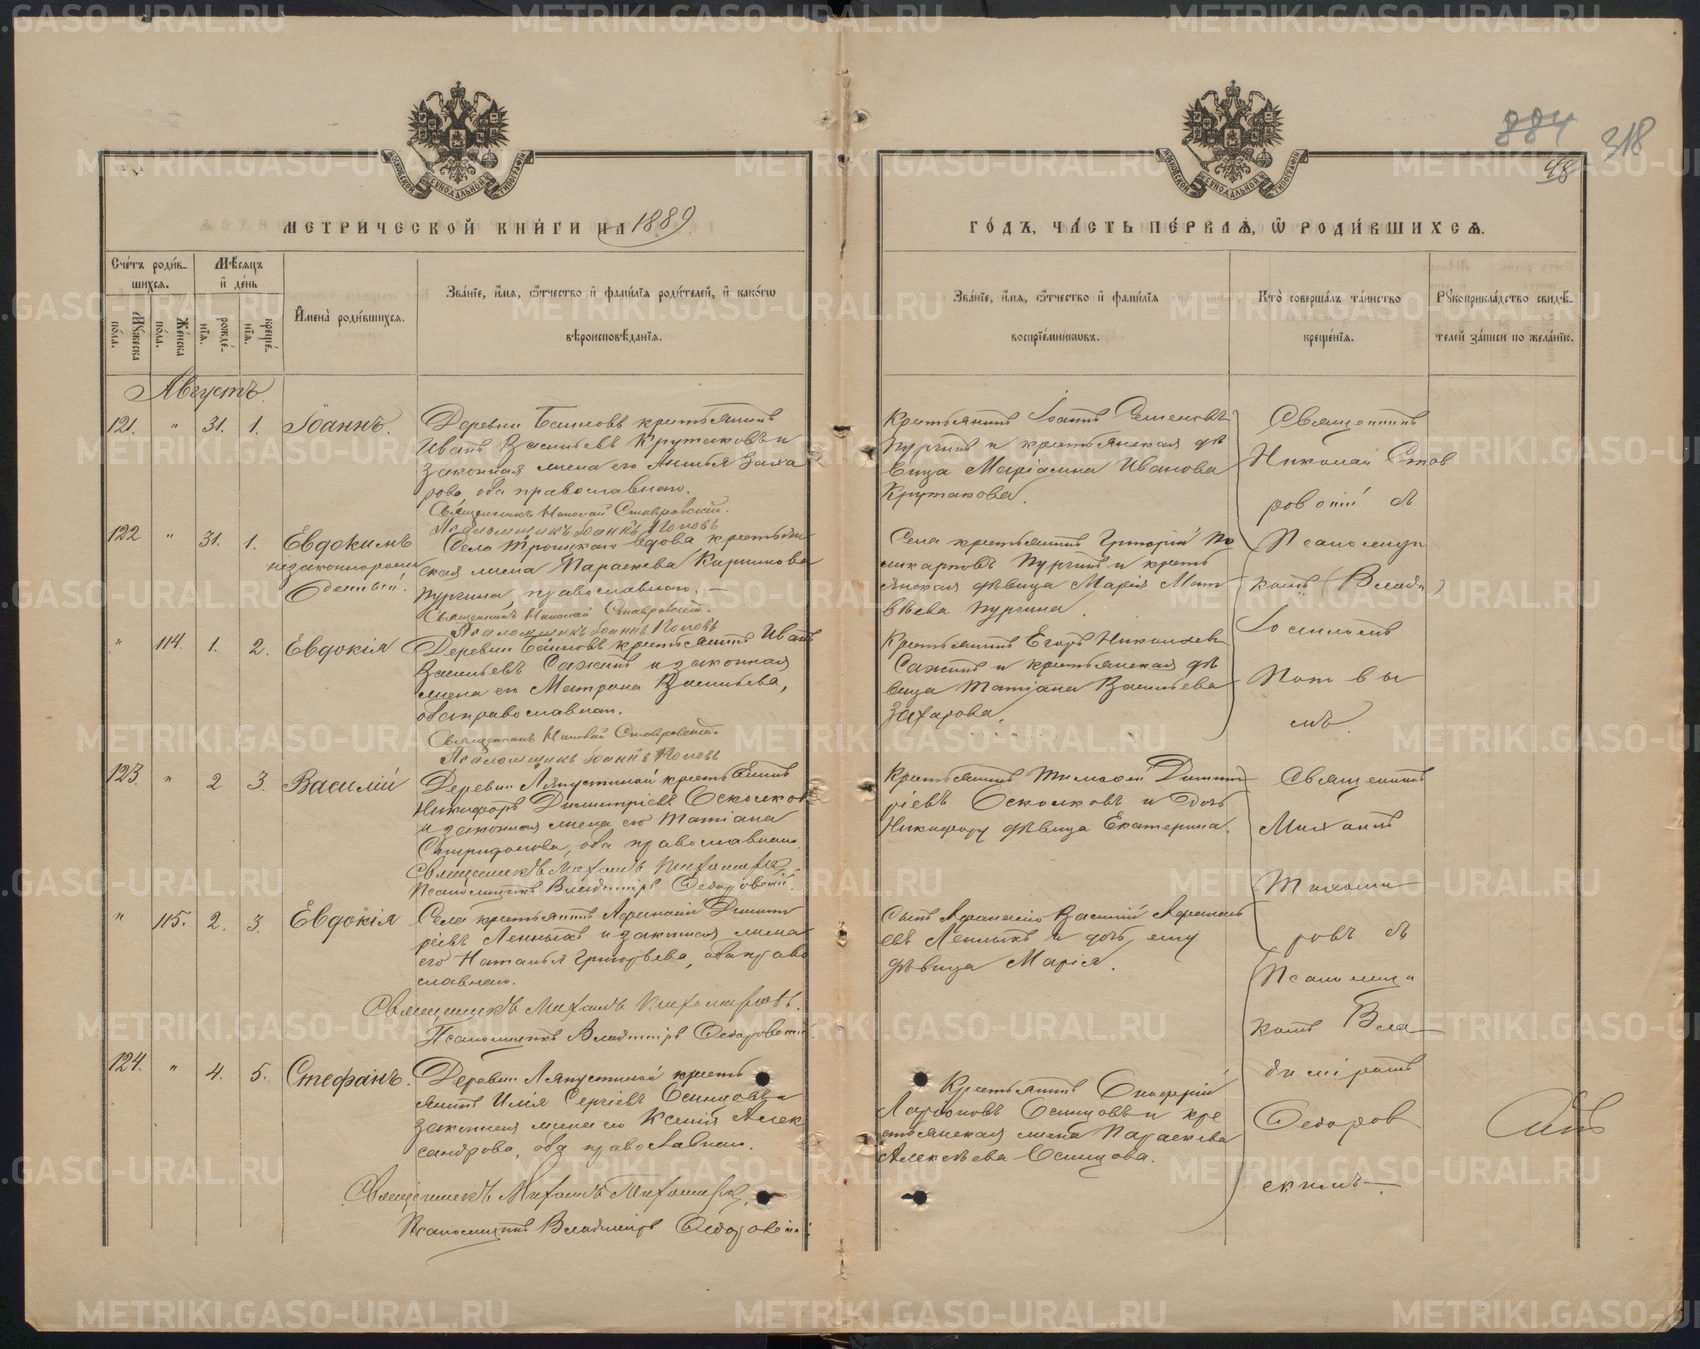 МЕТРИКИ.GASO-URAL.RU
884
318
98
МОСКОВСКОЙ СѴНОДАЛЬНОЙ ТИПОГРАФІИ
МОСКОВСКОЙ СѴНОДАЛЬНОЙ ТИПОГРАФІИ
МЕТРИ́ЧЕСКОЙ КНИ́ГИ НА 1889
ГО́ДЪ, ЧА́СТЬ ПЕ́РВАѦ, Ѽ РОДИ́ВШИХСѦ.
Сче́тъ роди́в-
шихсѧ.
Мѣ́сѧцъ
и҆ де́нь
Мꙋ́жеска
по́ла.
Же́нска
по́ла.
рожде́-
нїѧ.
креще́-
нїѧ.
И҆мена̀ роди́вшихсѧ.
Зва́нїе, и҆́мѧ, ѻ҆́тчество и҆ фами́лїѧ роди́телей, и҆ како́гѡ
вѣроисповѣ́данїѧ.
Зва́нїе, и҆́мѧ, ѻ҆́тчество и҆ фами́лїѧ
воспрїе́мникѡвъ.
Кто̀ соверша́лъ та́инство
креще́нїѧ.
Рꙋкоприкла́дство свидѣ́-
телей за́писи по жела́нїю.
Августъ.
121. " 31. 1. Іоаннъ.
Деревни Баиновъ крестьянинъ
Иванъ Васильевъ Крутаковъ и
законная жена его Анисья Заха
рова, оба православнаго.
Священникъ Николай Ставровскій.
Псаломщикъ Іоаннъ Поповъ
Крестьянинъ Іоаннъ Семеновъ
Пургинъ и крестьянская дѣ
вица Маріамна Иванова
Крутакова.
Священникъ
Николай Став
ровскій съ
122 " 31. 1. Евдокимъ
незаконнорож
денный.
Села Троицкаго вдова крестьян
ская жена Параскева Кирикова
Пургина, православнаго.
Священникъ Николай Ставровскій.
Псаломщикъ Іоаннъ Поповъ
Села крестьянинъ Григорій По
ликарповъ Пургинъ и кресть
янская дѣвица Марія Мат
вѣева Пургина.
Псаломщи
комъ
Іоанномъ
Поповы
мъ.
" 114. 1. 2. Евдокія
Деревни Баиновъ крестьянинъ Иванъ
Васильевъ Сажинъ и законная
жена его Матрона Васильева,
оба православнаго.
Священникъ Николай Ставровскій.
Псаломщикъ Іоаннъ Поповъ
Крестьянинъ Егоръ Николаевъ
Сажинъ и крестьянская дѣ
вица Татіана Васильева
Захарова.
123. " 2 3. Василій
Деревни Ляпустиной крестьянинъ
Никифоръ Димитріевъ Осколков
и законная жена его Татіана
Спиридонова, оба православнаго.
Священникъ Михаилъ Тихомировъ
Псаломщикъ Владиміръ Ѳедоровскій.
Крестьянинъ Тимоѳей Димит
ріевъ Осколковъ и дочь
Никифору дѣвица Екатерина.
Священникъ
Михаилъ
Тихоми
ровъ съ
Псаломщи
комъ Вла
диміромъ
Ѳедоров
скимъ.
" 115. 2. 3. Евдокія
Села крестьянинъ Аѳанасій Димит
ріевъ Ленныхъ и законная жена
его Наталья Григорьева, оба право
славнаго.
Священникъ Михаилъ Тихомировъ.
Псаломщикъ Владиміръ Ѳедоровскій.
Сынъ Аѳанасію Василій Аѳанась
евъ Ленныхъ и дочь ему
дѣвица Марія.
124. " 4. 5. Стефанъ.
Деревни Ляпустиной кресть
янинъ Илія Сергіевъ Осинцовъ и
законная жена его Ксенія Алек
сандрова, оба православнаго.
Священникъ Михаилъ Тихомировъ.
Псаломщикъ Владиміръ Ѳедоровскій.
Крестьянинъ Онисифоръ
Ларіоновъ Осинцовъ и кре
стьянская жена Параскева
Алексѣева Осинцова.